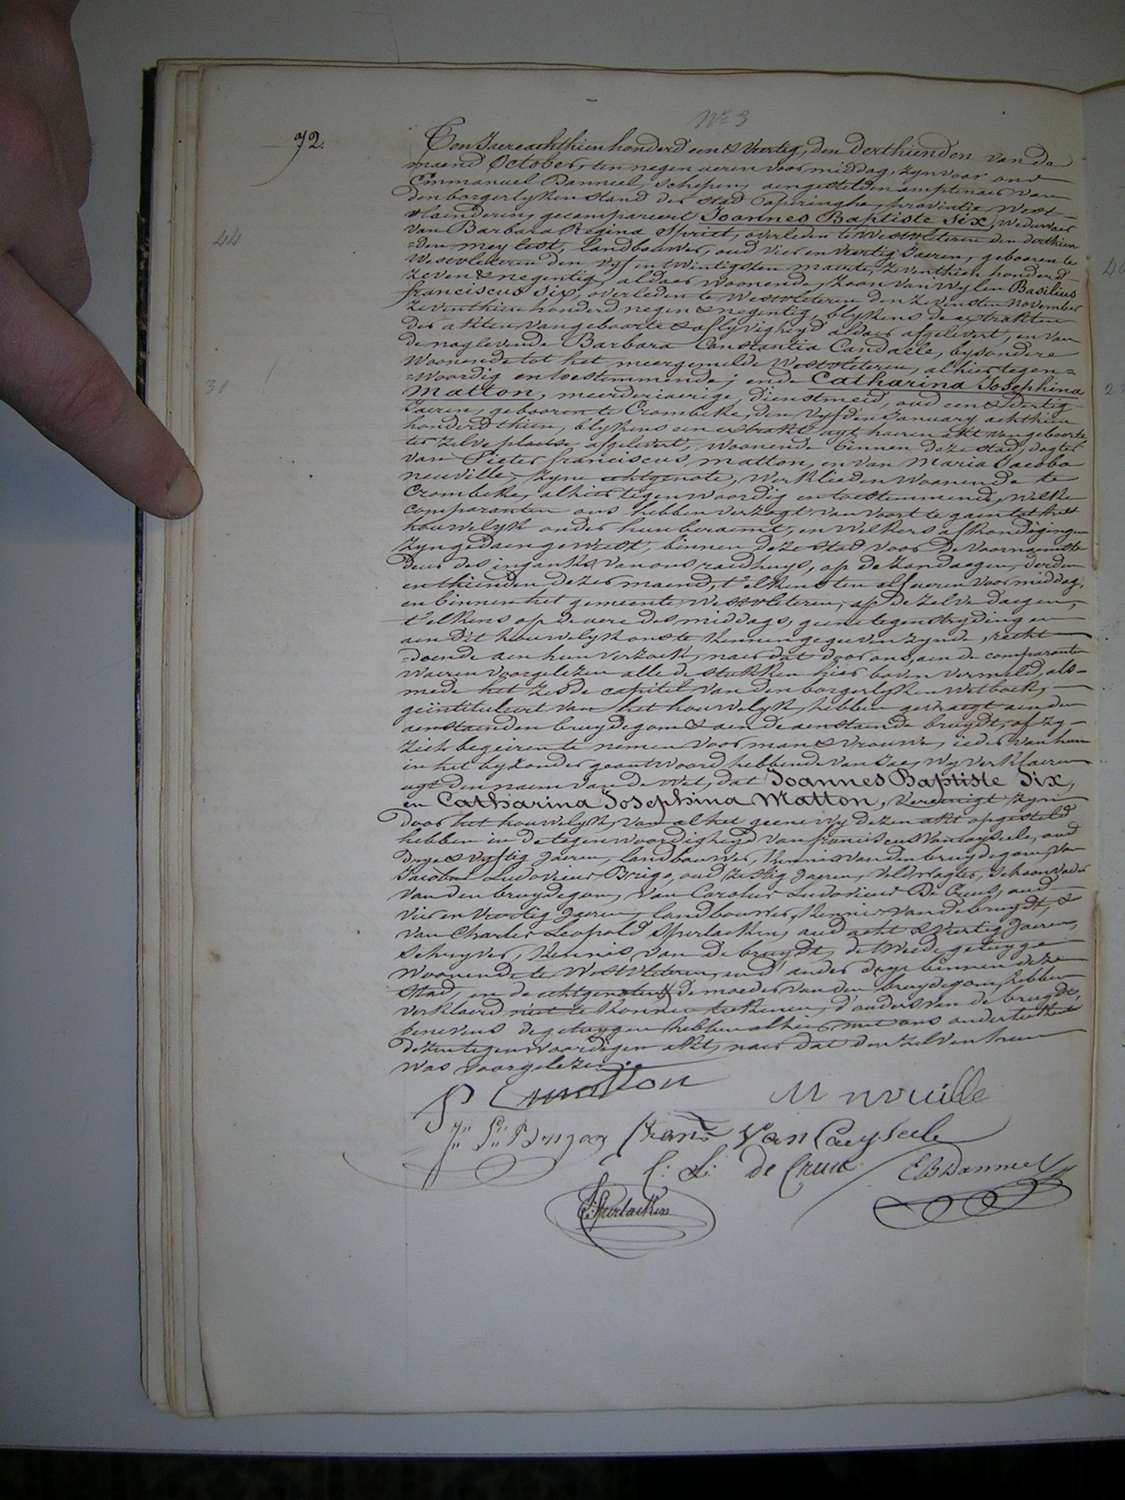 N° 3
72.
Den Jaere achthien honderd een & veertig, den derthienden van de
maend October, ten negen ueren voor middag, zyn voor ons
Emmanuel Danneel, Schepen, aengestelden amptenaer van
den borgerlyken stand der stad Poperinghe, provintie West-
vlaenderen, gecompareert Joannes Baptiste Six, weduwaer
van Barbara Regina Spriet, overleden te Westvleteren den derthien
44
den mey lest, landbouwer, oud vier en veertig Jaeren, geboren te
Westvleteren den vyf en twintigsten maerte zeventhien honderd
zeven & negentig, aldaer woonende, zoon van wylen Basilius
franciscus Six, overleden te Westvleteren den zevensten november
zeventhien honderd negen & negentig, blykens de extrakten
der akten van geboorte & aflyvigheyd aldaer afgelevert, en van
de nog levende Barbara Constantia Candaele, byzondere
woonende tot het meergemelde Westvleteren, alhier tegen=
31
=woordig en toestemmende; ende Catharina Josephina
Matton, meerderjaerige, dienstmeid, oud een & dertig
Jaeren, geboren te Crombeke, den vyfden January achthien
honderd thien, blykens een extrakt uyt haeren akt van geboorte
ter zelve plaetse afgelevert, woonende binnen deze stad, dogter
van Pieter franciscus Matton, en van Maria Jacoba
neuville, zyne echtgenote, werklieden woonende te
Crombeke, alhier tegenwoordig en toestemmende, welke
comparanten ons hebben verzogt van voort te gaen tot het
houwelyk onder hun beraemt, en welkers afkondigingen
zyn gedaen geweest, binnen deze stad voor de voornaemste
deur des ingangs van ons raedhuys, op de zondaegen, derden
en thienden dezer maend, t'elkens ten elf ueren voor middag,
en binnen het gemeente Westvleteren, op de zelve daegen,
t'elkens op de uere des middags, geene tegenstryding en
aen dit houwelyk ons te kennen gegeven zynde, recht
doende aen hun verzoek, naer dat door ons, aen de comparanten
waeren voorgelezen alle de stukken hier boven vermeld, als-
mede het zesde capitel van den borgerlyken wetboek,
geïntituleert van het houwelyk, hebben gevraegt aen den
aenstaenden bruydegom & aen de aenstaende bruydt, of zy
zich begeiren te nemen voor man & vrouwe, ieder van hun
in het byzonder geantwoord hebbende van Jae, wy verklaeren
uyt den naem van de wet, dat Joannes Baptiste Six,
en Catharina Josephina Matton, vereenigt zyn
door het houwelyk, van al het geene wy dezen akt opgesteld
hebben in de tegenwoordigheyd van franciscus Vancayseele, oud
drye & vyftig Jaeren, landbouwer, kennis van den bruydegom, van
Jacobus Ludovicus Brigo, oud zestig Jaeren, veldwagter, schoonvader
van den bruydegom, van Carolus Ludovicus De Cruc, oud
vier en veertig Jaeren, landbouwer, kennis van de bruydt, &
van Charles Leopold Sperlaeken, oud acht & veertig Jaeren,
Schryver, kennis van de bruydt, de twee getuygen
woonende te Westvleteren, en d'ander drye binnen deze
Stad, en de echtgenoten & de moeder van den bruydegom hebben
verklaerd niet te konnen teekenen, d'ouders van de bruydt,
benevens de getuygen hebben alhier met ons onderteekend
dezen tegenwoordigen akt, naer dat den zelven hun
was voorgelezen.
P f matton M nouille
Frans Van Cayseele
C: L: de Cruc EBDanneel
C: Sperlaeken